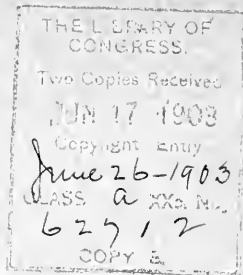 THE LIBRARY OF
CONGRESS.
Two Copies Received
JUN 17 1903
Copyright Entry
June 26-1903
CLASS a XXc. No.
62712
COPY